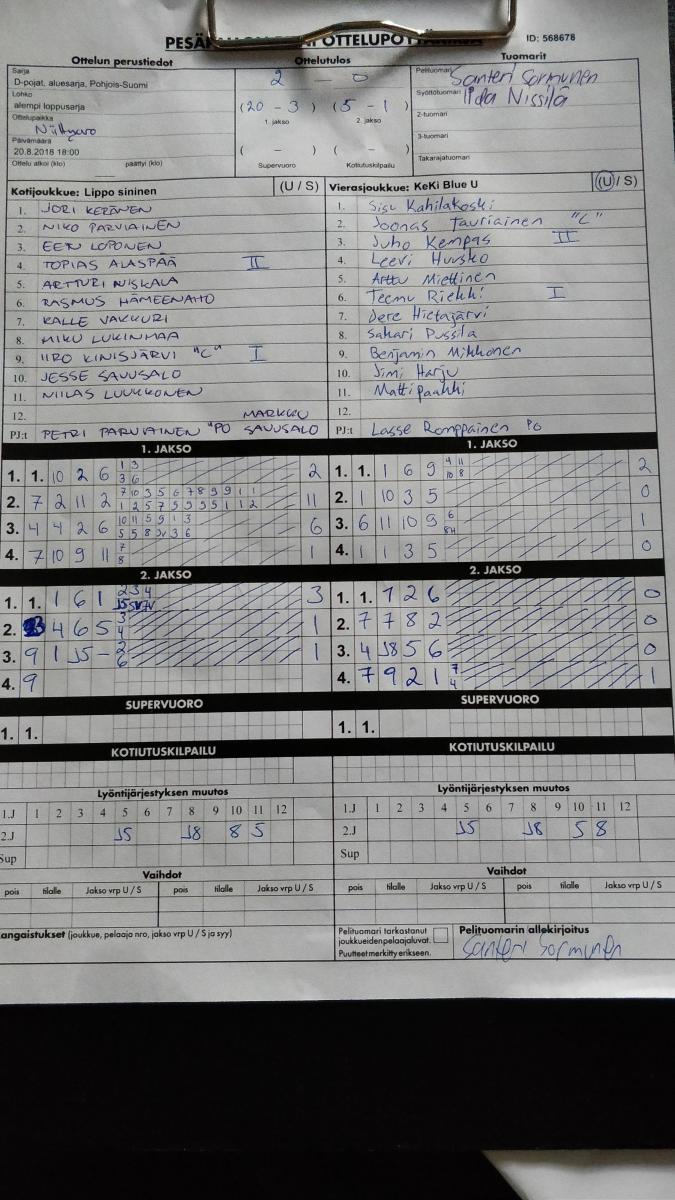 OTTELUPÖYTÄKIRJA
ID: 568678
Ottelun perustiedot
Ottelutulos
Tuomarit
Sarja
D-pojat, aluesarja, Pohjois-Suomi
Lohko
alempi loppusarja
Ottelupaikka
Päivämäärä
20.8.2018 18:00
Ottelu alkoi (klo) päättyi (klo)
2 — 0
(20 - 3) (5 - 1)
1. jakso 2. jakso
( - ) ( - )
Supervuoro Kotiutuskilpailu
Pelituomari Santeri Sorminen
Syöttötuomari Iida Nissilä
2-tuomari
3-tuomari
Takarajatuomari
Kotijoukkue: Lippo sininen (U / S)
1. JORI KERÄNEN
2. NIKO PARVIAINEN
3. EETU LOPONEN
4. TOPIAS ALASPÄÄ II
5. ARTTURI NISKALA
6. RASMUS HÄMEENAHO
7. KALLE VAKKURI
8. MIKU LUKINMAA
9. IIRO KINISJÄRVI "C" I
10. JESSE SAVUSALO
11. NIILAS LUUKKONEN
12.
PJ:t PETRI PARVIAINEN "PO MARKKU SAVUSALO
Vierasjoukkue: KeKi Blue U (U / S)
1. Sisu Kahilakoski
2. Joonas Tauriainen "C"
3. Juho Kempas II
4. Leevi Huusko
5. Arttu Miettinen
6. Teemu Riekki I
7. Jere Hietajärvi
8. Sakari Pussila
9. Benjamin Mikkonen
10. Jimi Harju
11. Matti paakki
12.
PJ:t Lasse Romppainen Po
1. JAKSO
1. 1. 10 2 6 1 3 3 6 2
2. 7 2 11 2 11
3. 4 4 2 6 6
4. 7 10 9 11 7 8 1
1. JAKSO
1. 1. 1 6 9 4 11 10 8 2
2. 1 10 3 5 0
3. 6 11 10 9 6 8H 1
4. 1 1 3 5 0
2. JAKSO
1. 1. 1 6 1 2 3 4 3
2. 4 6 5 3 4 1
3. 9 1 J5 - 2 6 1
4. 9
2. JAKSO
1. 1. 7 2 6 0
2. 7 7 8 2 0
3. 4 J8 5 6 0
4. 7 9 2 1 7 4 1
SUPERVUORO
1. 1.
SUPERVUORO
1. 1.
KOTIUTUSKILPAILU
KOTIUTUSKILPAILU
Lyöntijärjestyksen muutos
1.J 1 2 3 4 5 6 7 8 9 10 11 12
2.J J5 J8 8 5
Sup
Lyöntijärjestyksen muutos
1.J 1 2 3 4 5 6 7 8 9 10 11 12
2.J J5 J8 5 8
Sup
Vaihdot
pois tilalle Jakso vrp U / S pois tilalle Jakso vrp U / S
Vaihdot
pois tilalle Jakso vrp U / S pois tilalle Jakso vrp U / S
angaistukset (joukkue, pelaaja nro, jakso vrp U / S ja syy)
Pelituomari tarkastanut
joukkueidenpelaajaluvat.
Puutteet merkitty erikseen.
Pelituomarin allekirjoitus
Santeri Sorminen